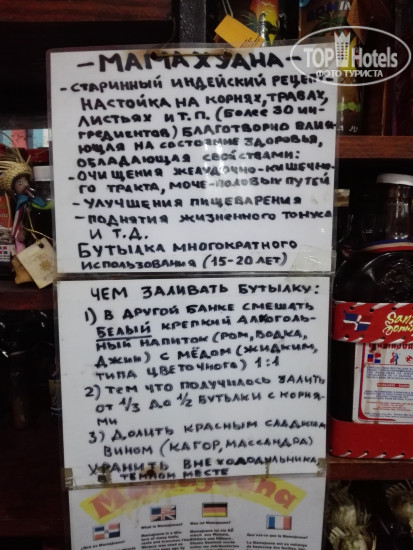 TOPHotels
ФОТО ТУРИСТА
- МАМАХУАНА -
- СТАРИННЫЙ ИНДЕЙСКИЙ РЕЦЕПТ
НАСТОЙКА НА КОРНЯХ, ТРАВАХ,
ЛИСТЬЯХ И Т.П. (БОЛЕЕ 30 ИН-
ГРЕДИЕНТОВ) БЛАГОТВОРНО ВЛИЯ-
ЮЩАЯ НА СОСТОЯНИЕ ЗДОРОВЬЯ,
ОБЛАДАЮЩАЯ СВОЙСТВАМИ:
- ОЧИЩЕНИЯ ЖЕЛУДОЧНО-КИШЕЧНО-
ГО ТРАКТА, МОЧЕ-ПОЛОВЫХ ПУТЕЙ
- УЛУЧШЕНИЯ ПИЩЕВАРЕНИЯ
- ПОДНЯТИЯ ЖИЗНЕННОГО ТОНУСА
И Т.Д.
БУТЫЛКА МНОГОКРАТНОГО
ИСПОЛЬЗОВАНИЯ (15-20 ЛЕТ)
ЧЕМ ЗАЛИВАТЬ БУТЫЛКУ:
1) В ДРУГОЙ БАНКЕ СМЕШАТЬ
БЕЛЫЙ КРЕПКИЙ АЛКОГОЛЬ-
НЫЙ НАПИТОК (РОМ, ВОДКА,
ДЖИН) С МЁДОМ (ЖИДКИМ,
ТИПА ЦВЕТОЧНОГО) 1:1
2) ТЕМ ЧТО ПОЛУЧИЛОСЬ ЗАЛИТЬ
ОТ 1/3 ДО 1/2 БУТЫЛКИ С КОРНЯ-
МИ
3) ДОЛИТЬ КРАСНЫМ СЛАДКИМ
ВИНОМ (КАГОР, МАССАНДРА)
ХРАНИТЬ ВНЕ ХОЛОДИЛЬНИКА
ТЁМНОМ МЕСТЕ
Mamajuana
What is Mamajuana?